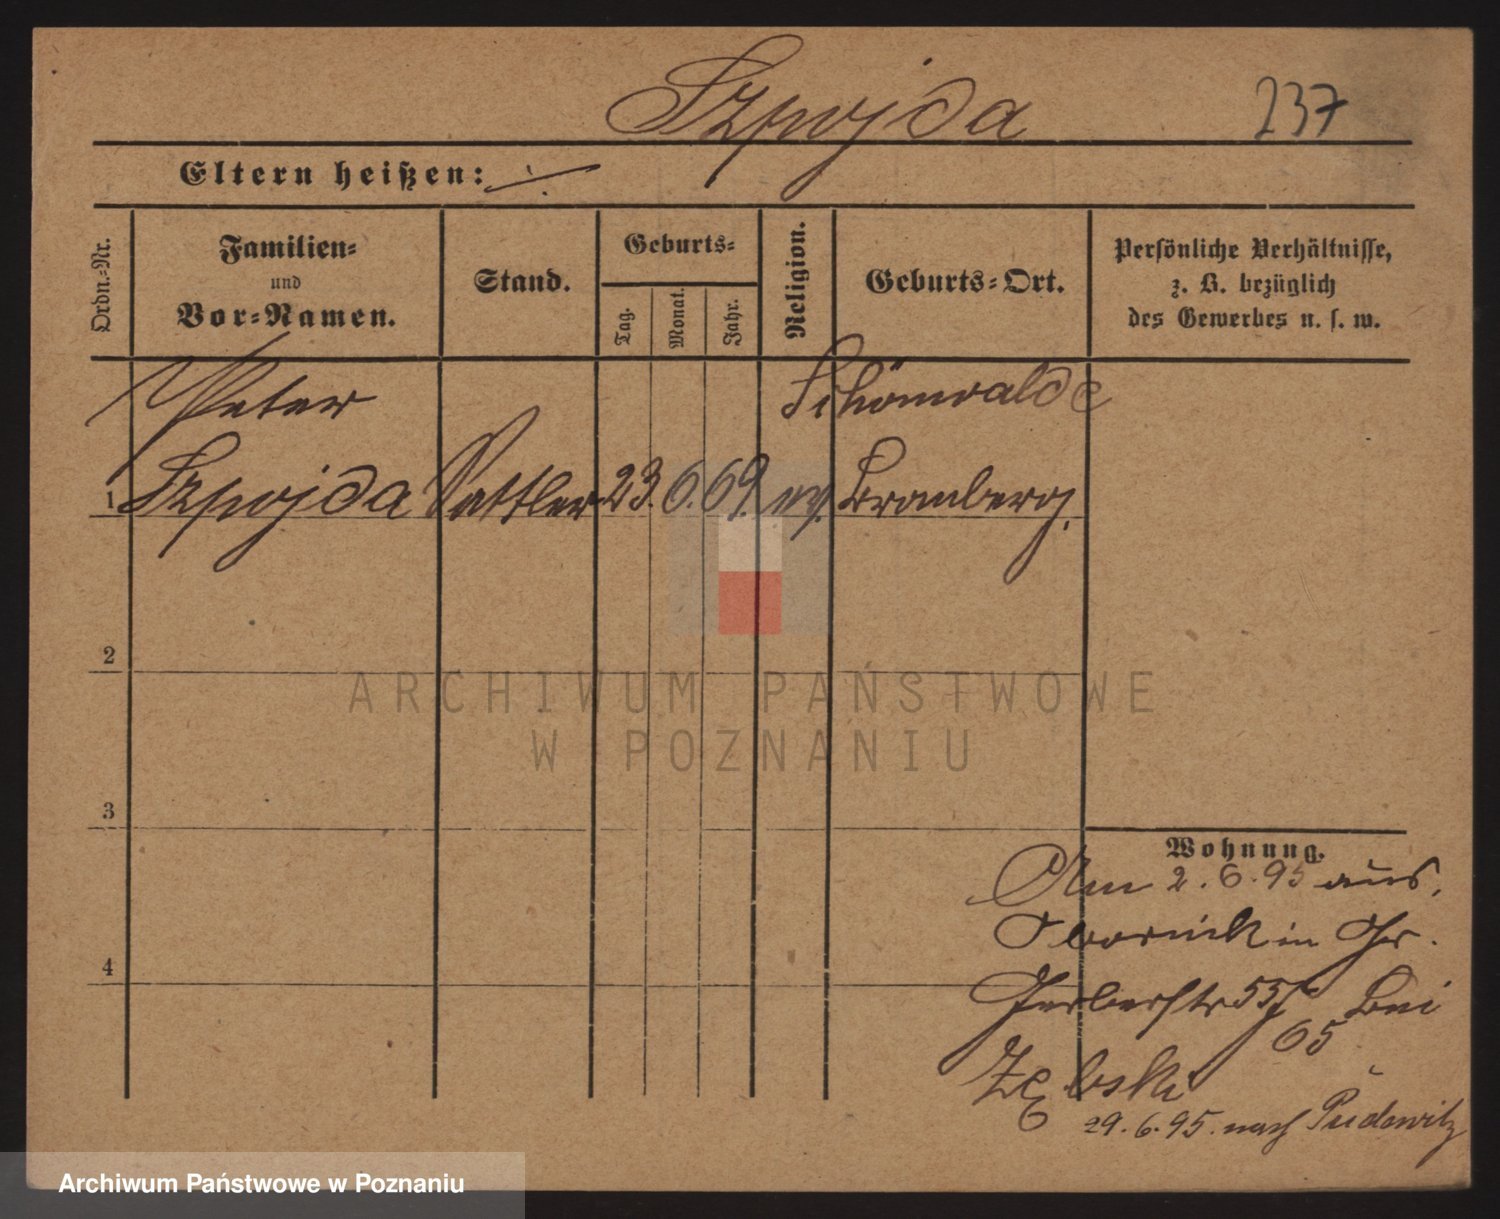 Szpojda 237
Eltern heißen: ./.
Ordn.-Nr.
Familien-
und
Vor-Namen.
Stand.
Geburts-
Tag.
Monat.
Jahr.
Religion.
Geburts-Ort.
Persönliche Verhältnisse,
z. B. bezüglich
des Gewerbes u. s. w.
Peter Schönwalde
1 Szpojda Sattler 23. 6. 69. ev. Bromberg.
2
3
4
Wohnung.
Am 2. 6. 95 aus
Obornick in Gr.
Gerberstr 55 bei
65
Zębski
29. 6. 95. nach Pudewitz
ARCHIWUM PAŃSTWOWE
W POZNANIU
Archiwum Państwowe w Poznaniu